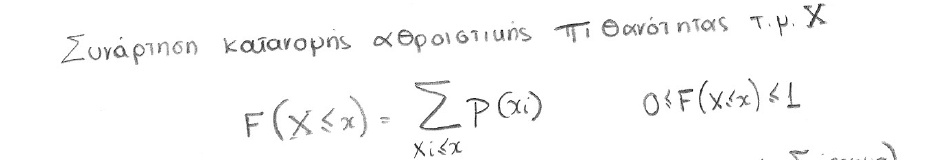 Συνάρτηση κατανομής αθροιστικής πιθανότητας τ.μ. X
F(X≤x) = Σ P(xi) 0≤F(X≤x)≤1
Xi≤x